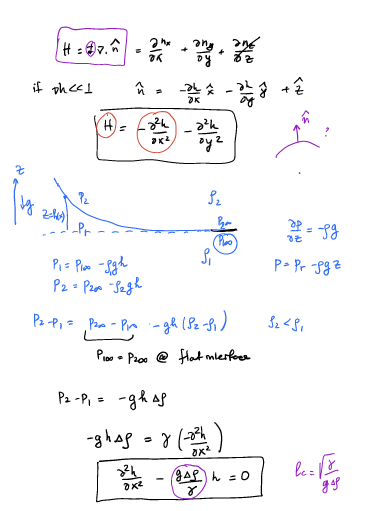 H = ½ ∇·n̂ = ∂nx/∂x + ∂ny/∂y + ∂nz/∂z
if ∇h<<1 n̂ = -∂h/∂x x̂ - ∂h/∂y ŷ + ẑ
H = -∂²h/∂x² - ∂²h/∂y²
n̂ ?
z
↓g z=h(x) P₂ ρ₂
P₁ P₂∞
P₁∞ ρ₁
∂p/∂z = -ρg
P₁ = P₁∞ - ρ₁gh P = Pr - ρgz
P₂ = P₂∞ - ρ₂gh
P₂-P₁ = P₂∞ - P₁∞ - gh(ρ₂-ρ₁) ρ₂<ρ₁
P₁∞ = P₂∞ @ flat interface
P₂-P₁ = -ghΔρ
-ghΔρ = γ(-∂²h/∂x²)
∂²h/∂x² - gΔρ/γ h = 0 lc = √γ/gΔρ